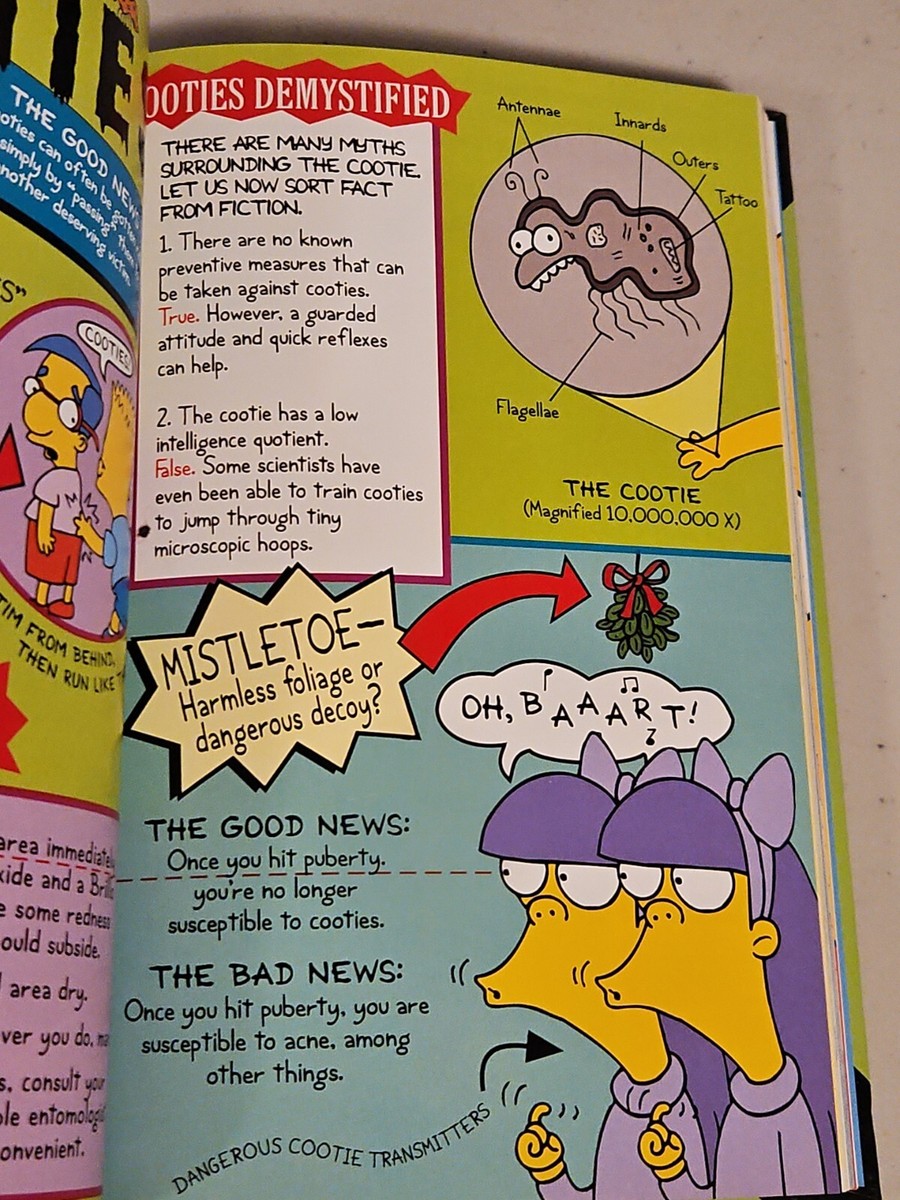 THE GOOD NEWS
ooties can often be gotten
simply by "passing" them
nother deserving victim.
S"
COOTIES!
TIM FROM BEHIND,
THEN RUN LIKE
area immediatel
xide and a Brill
e some redness
ould subside.
area dry.
ver you do,
s, consult your
ble entomologis
onvenient.
OOTIES DEMYSTIFIED
THERE ARE MANY MYTHS
SURROUNDING THE COOTIE.
LET US NOW SORT FACT
FROM FICTION.
1. There are no known
preventive measures that can
be taken against cooties.
True. However, a guarded
attitude and quick reflexes
can help.
2. The cootie has a low
intelligence quotient.
False. Some scientists have
even been able to train cooties
to jump through tiny
microscopic hoops.
Antennae
Innards
Outers
Tattoo
Flagellae
THE COOTIE
(Magnified 10,000,000 X)
MISTLETOE—
Harmless foliage or
dangerous decoy?
OH, BAAART!
THE GOOD NEWS:
Once you hit puberty,
you're no longer
susceptible to cooties.
THE BAD NEWS:
Once you hit puberty, you are
susceptible to acne, among
other things.
DANGEROUS COOTIE TRANSMITTERS